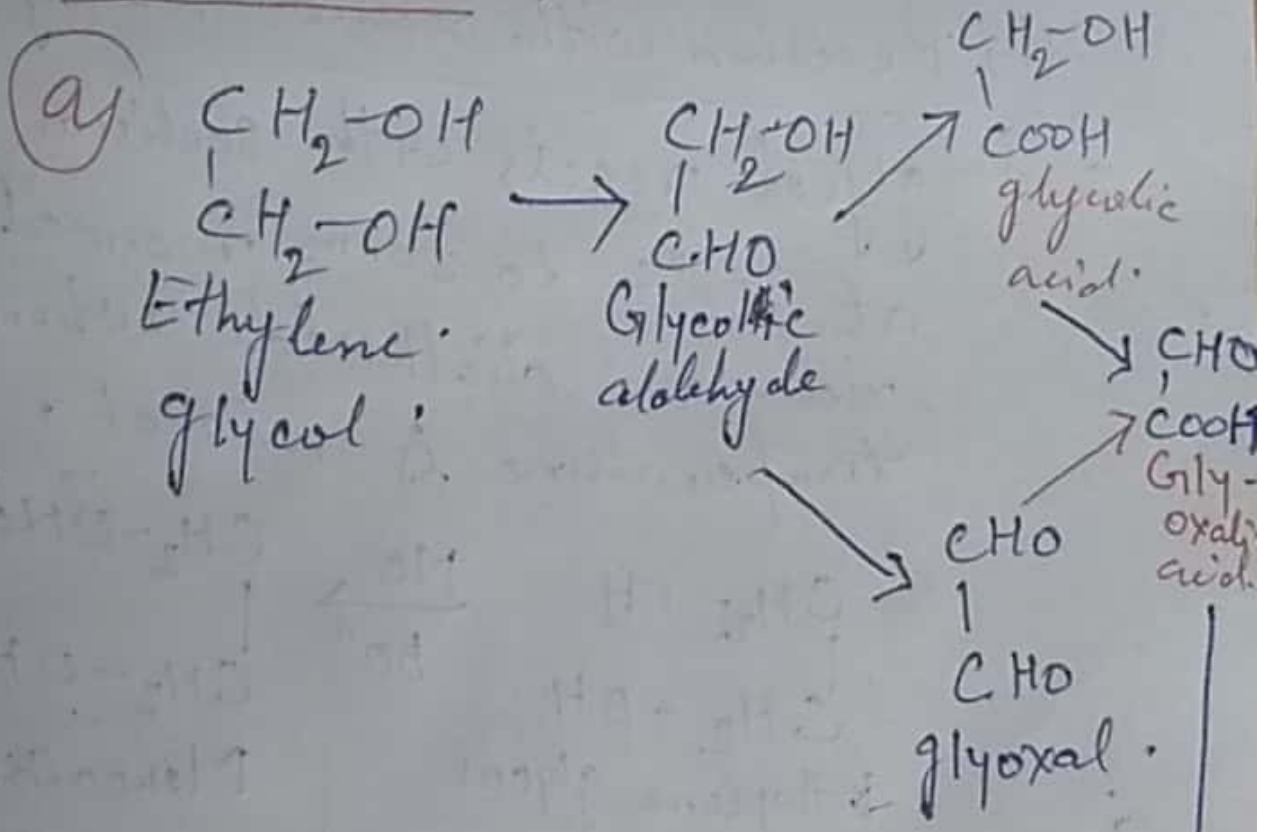 a)
CH2-OH
CH2-OH
Ethylene
glycol :
CH2-OH
CHO
Glycollic
aldehyde
CH2-OH
COOH
glycolic
acid.
CHO
CHO
glyoxal.
CHO
COOH
Gly-
oxali
acid.